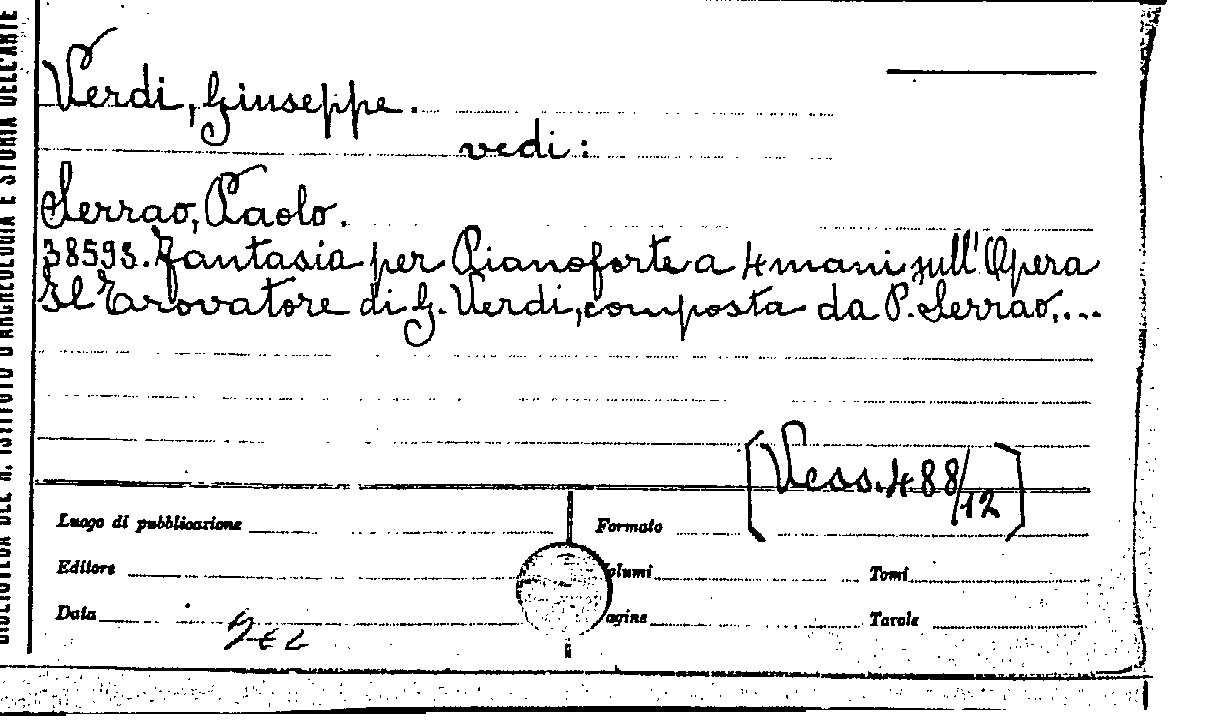 BIBLIOTECA DEL R. ISTITUTO D'ARCHEOLOGIA E STORIA DELL'ARTE
Verdi, Giuseppe.
vedi:
Serrao, Paolo.
38593. Fantasia per Pianoforte a 4 mani sull'Opera
Il Trovatore di G. Verdi, composta da P. Serrao,...
[Vess. 488/12]
Luogo di pubblicazione
Formato
Editore
olumi
Tomi
Data
agine
Tavole